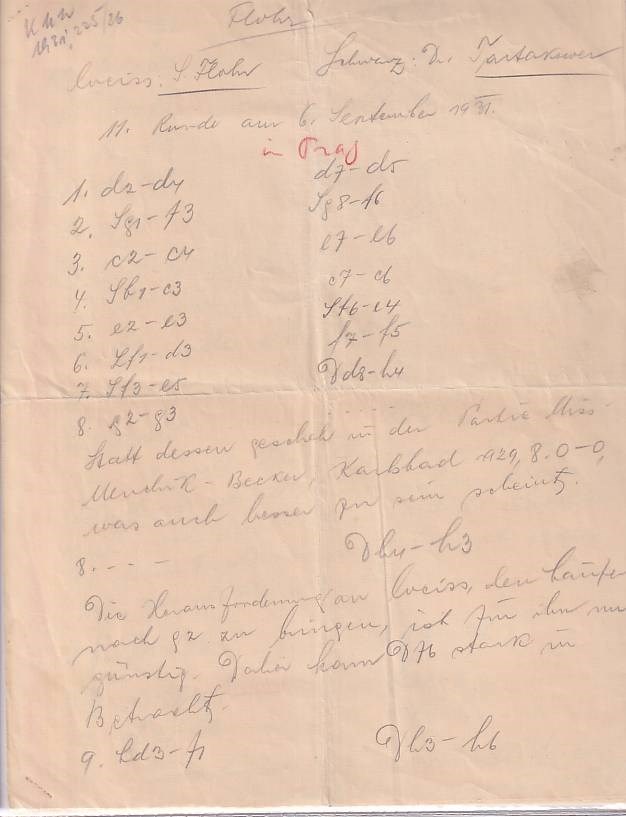 KHW
1931, 225/26
Flohr
Weiss: S. Flohr Schwarz: Dr. Tartakower
11. Runde am 6. September 1931.
in Prag
1. d2-d4 d7-d5
2. Sg1-f3 Sg8-f6
3. c2-c4 e7-e6
4. Sb1-c3 c7-c6
5. e2-e3 Sf6-e4
6. Lf1-d3 f7-f5
7. Sf3-e5 Dd8-h4
8. g2-g3 . . . .
Statt dessen geschah in der Partie Miss
Menchik - Becker, Karlsbad 1929, 8. 0-0,
was auch besser zu sein scheint.
8. - - - Dh4-h3
Die Herausforderung an Weiss, den Läufer
nach g2 zu bringen, ist für ihn nur
günstig. Daher kam Df6 stark in
Betracht.
9. Ld3-f1 Dh3-h6